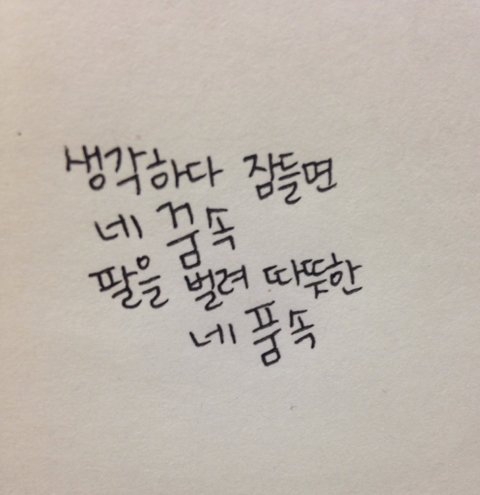 생각하다 잠들면
네 꿈속
팔을 벌려 따뜻한
네 품속